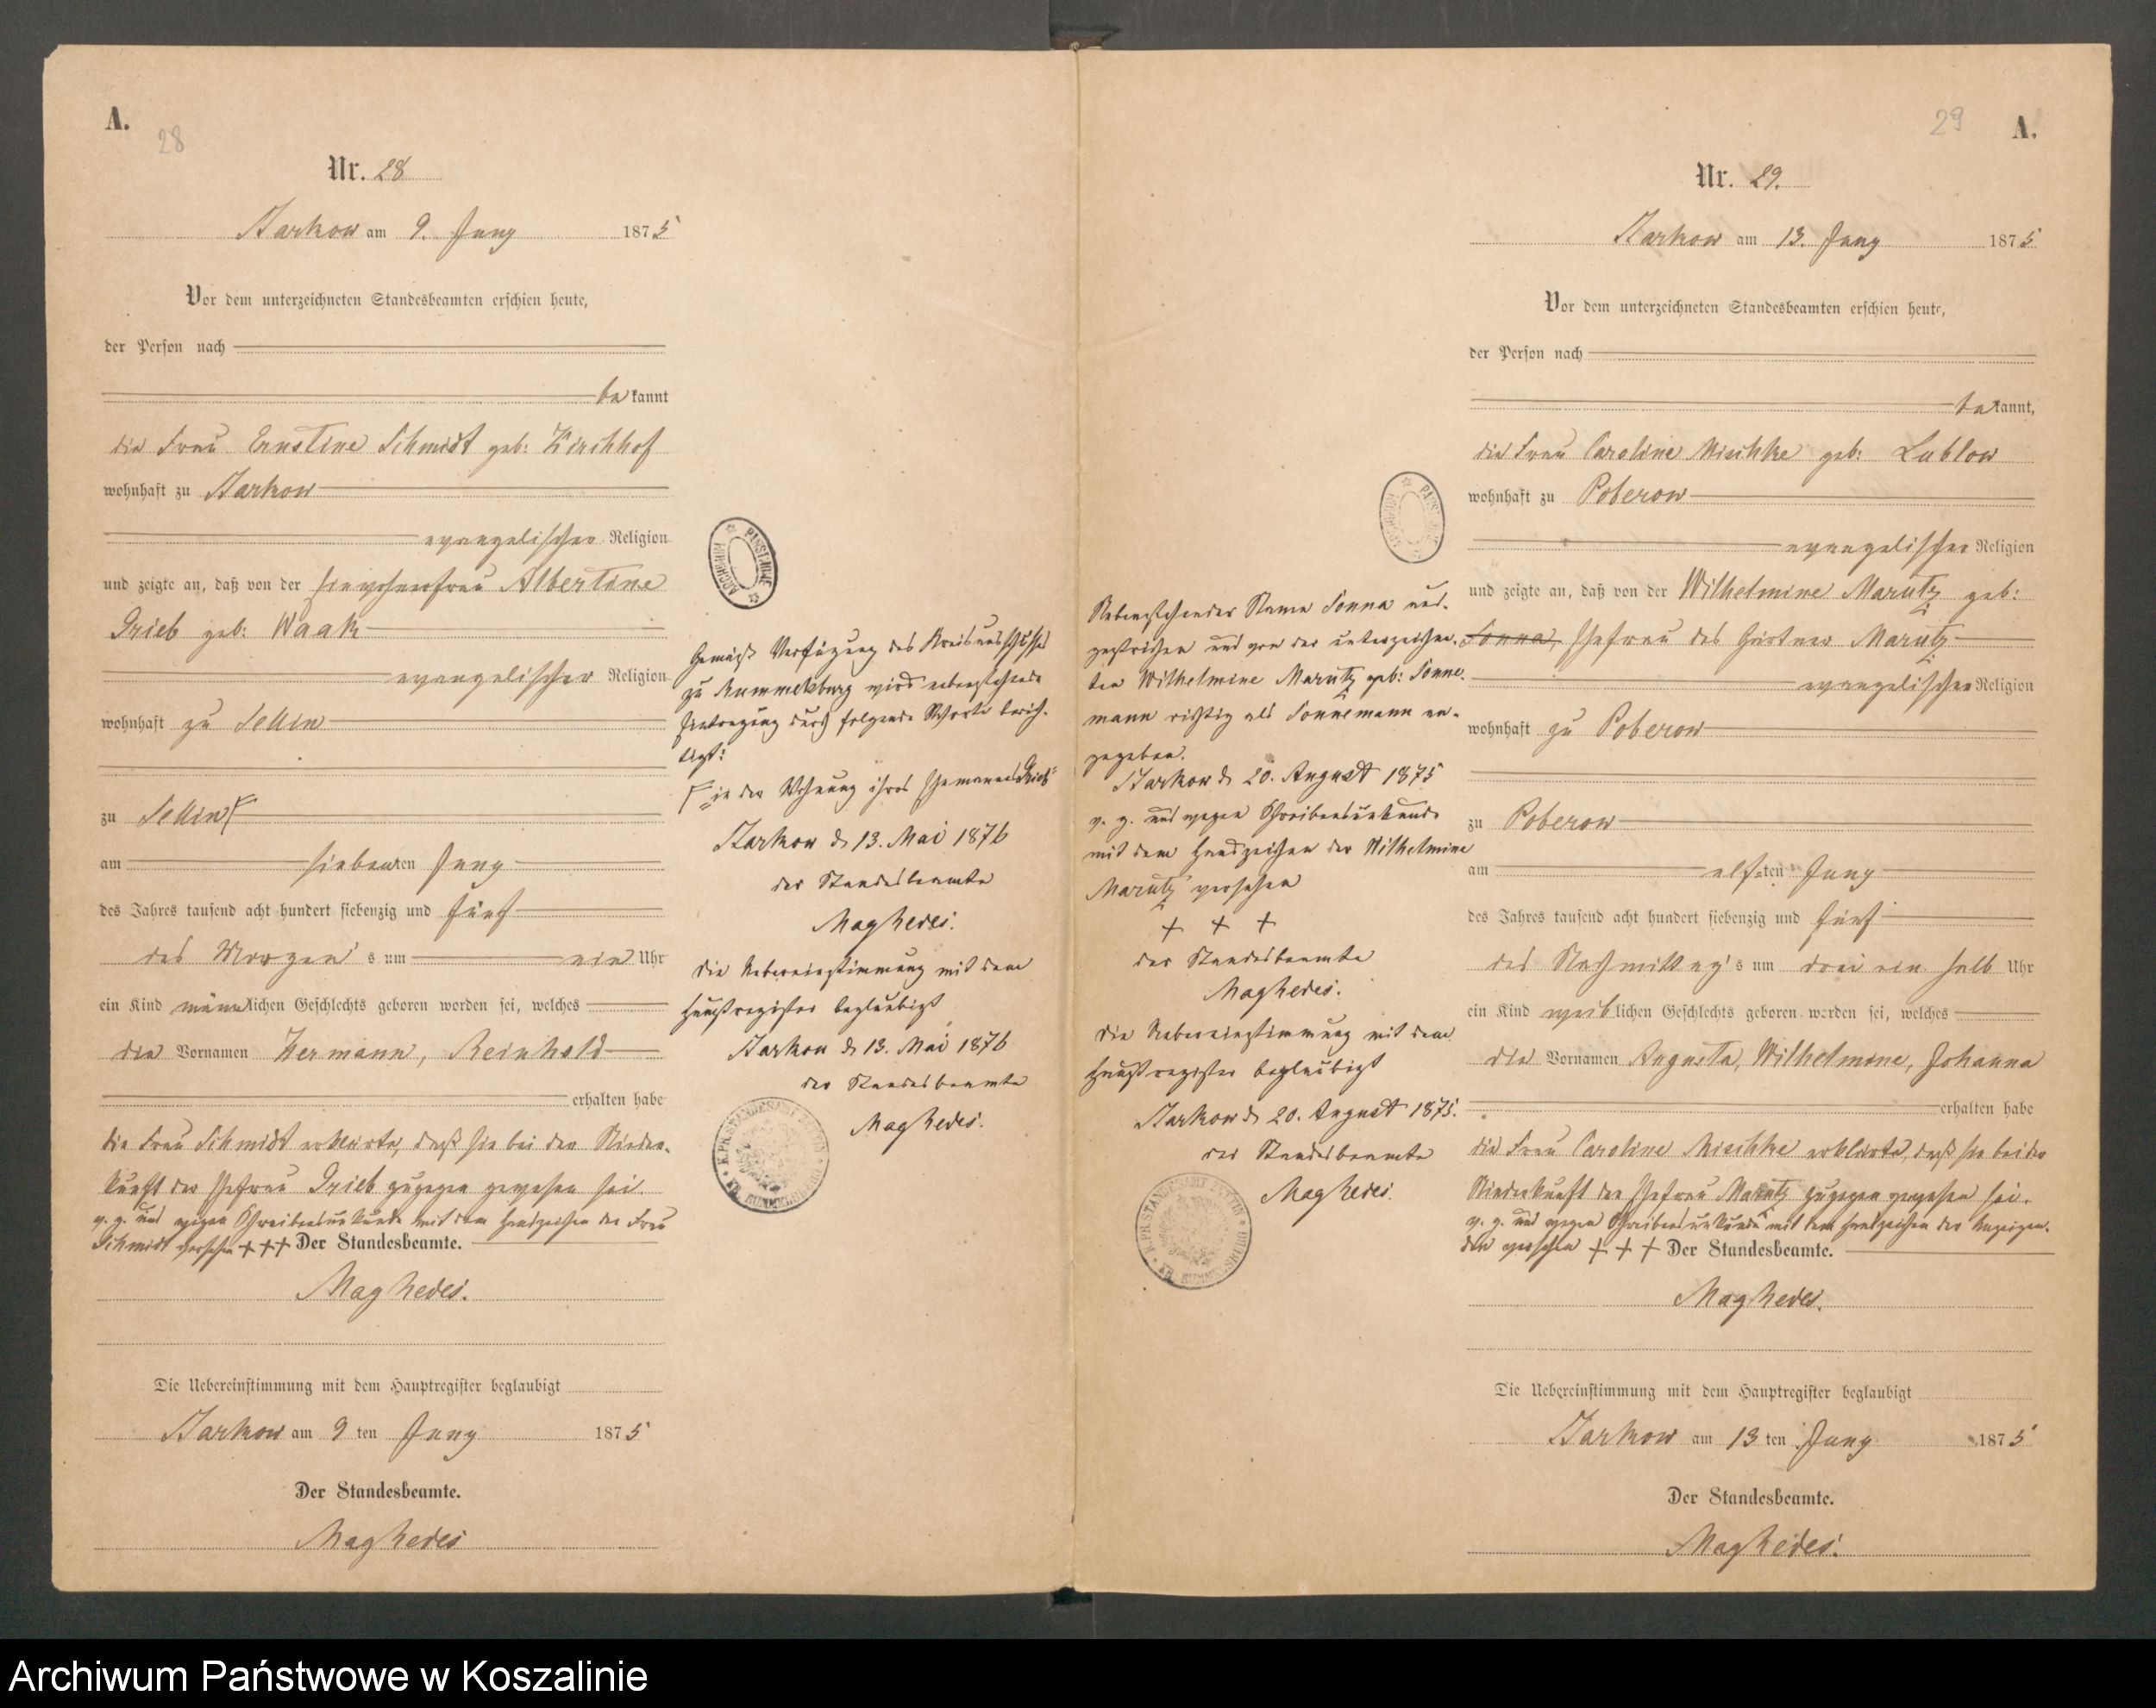 A.
28
Nr. 28
Starkow am 9. Juny 1875
Vor dem unterzeichneten Standesbeamten erschien heute,
der Person nach
bekannt
die Frau Ernstine Schmidt geb: Kirchhof
wohnhaft zu Starkow
evangelischer Religion
und zeigte an, daß von der Albertine
Grieb geb: Waak
evangelischer Religion
wohnhaft zu Sellin
zu Sellin
am siebenten Juny
des Jahres tausend acht hundert siebenzig und fünf
des Morgens um ein Uhr
ein Kind männlichen Geschlechts geboren worden sei, welches
die Vornamen Hermann, Reinhold
erhalten habe
die Frau Schmidt erklärte, daß sie bei der Nieder-
kunft der Ehefrau Grieb zugegen gewesen sei.
v. g. und wegen Schreibensunkunde mit dem Handzeichen der Frau
Schmidt versehen +++ Der Standesbeamte.
Maghedes.
Die Uebereinstimmung mit dem Hauptregister beglaubigt
Starkow am 9 ten Juny 1875
Der Standesbeamte.
Maghedes
ARCHIWUM PAŃSTWOWE
Gemäß Verfügung des Kreisausschusses
zu Rummelsburg wird nebenstehende
Eintragung durch folgende Worte berich-
tigt:
in der Wohnung ihres Ehemannes Grieb
Starkow d. 13. Mai 1876
der Standesbeamte
Maghedes.
Die Uebereinstimmung mit dem
Hauptregister beglaubigt
Starkow d. 13. Mai 1876
der Standesbeamte
Maghedes.
Nebenstehender Name Sonna aus-
gestrichen und von der unterzeichne-
ten Wilhelmine Marutz geb: Sonne-
mann richtig als Sonnemann an-
gegeben.
Starkow d. 20. August 1875
v. g. und wegen Schreibensunkunde
mit dem Handzeichen der Wilhelmine
Marutz versehen
+ + +
der Standesbeamte
Maghedes.
Die Uebereinstimmung mit dem
Hauptregister beglaubigt
Starkow d. 20. August 1875.
der Standesbeamte
Maghedes.
29
A.
Nr. 29.
Starkow am 13. Juny 1875
Vor dem unterzeichneten Standesbeamten erschien heute,
der Person nach
bekannt,
die Frau Caroline Mischke geb: Lublow
wohnhaft zu Poberow
evangelischer Religion
und zeigte an, daß von der Wilhelmine Marutz geb:
Sonna, Ehefrau des Gärtner Marutz
evangelischer Religion
wohnhaft zu Poberow
zu Poberow
am elften Juny
des Jahres tausend acht hundert siebenzig und fünf
des Nachmittag's um drei ein halb Uhr
ein Kind weiblichen Geschlechts geboren worden sei, welches
die Vornamen Augusta, Wilhelmine, Johanna
erhalten habe
die Frau Caroline Mischke erklärte, daß sie bei der
Niederkunft der Ehefrau Marutz zugegen gewesen sei.
v. g. und wegen Schreibensunkunde mit dem Handzeichen der Anzeigen-
den versehen + + + Der Standesbeamte.
Maghedes.
Die Uebereinstimmung mit dem Hauptregister beglaubigt
Starkow am 13 ten Juny 1875
Der Standesbeamte.
Maghedes.
Archiwum Państwowe w Koszalinie